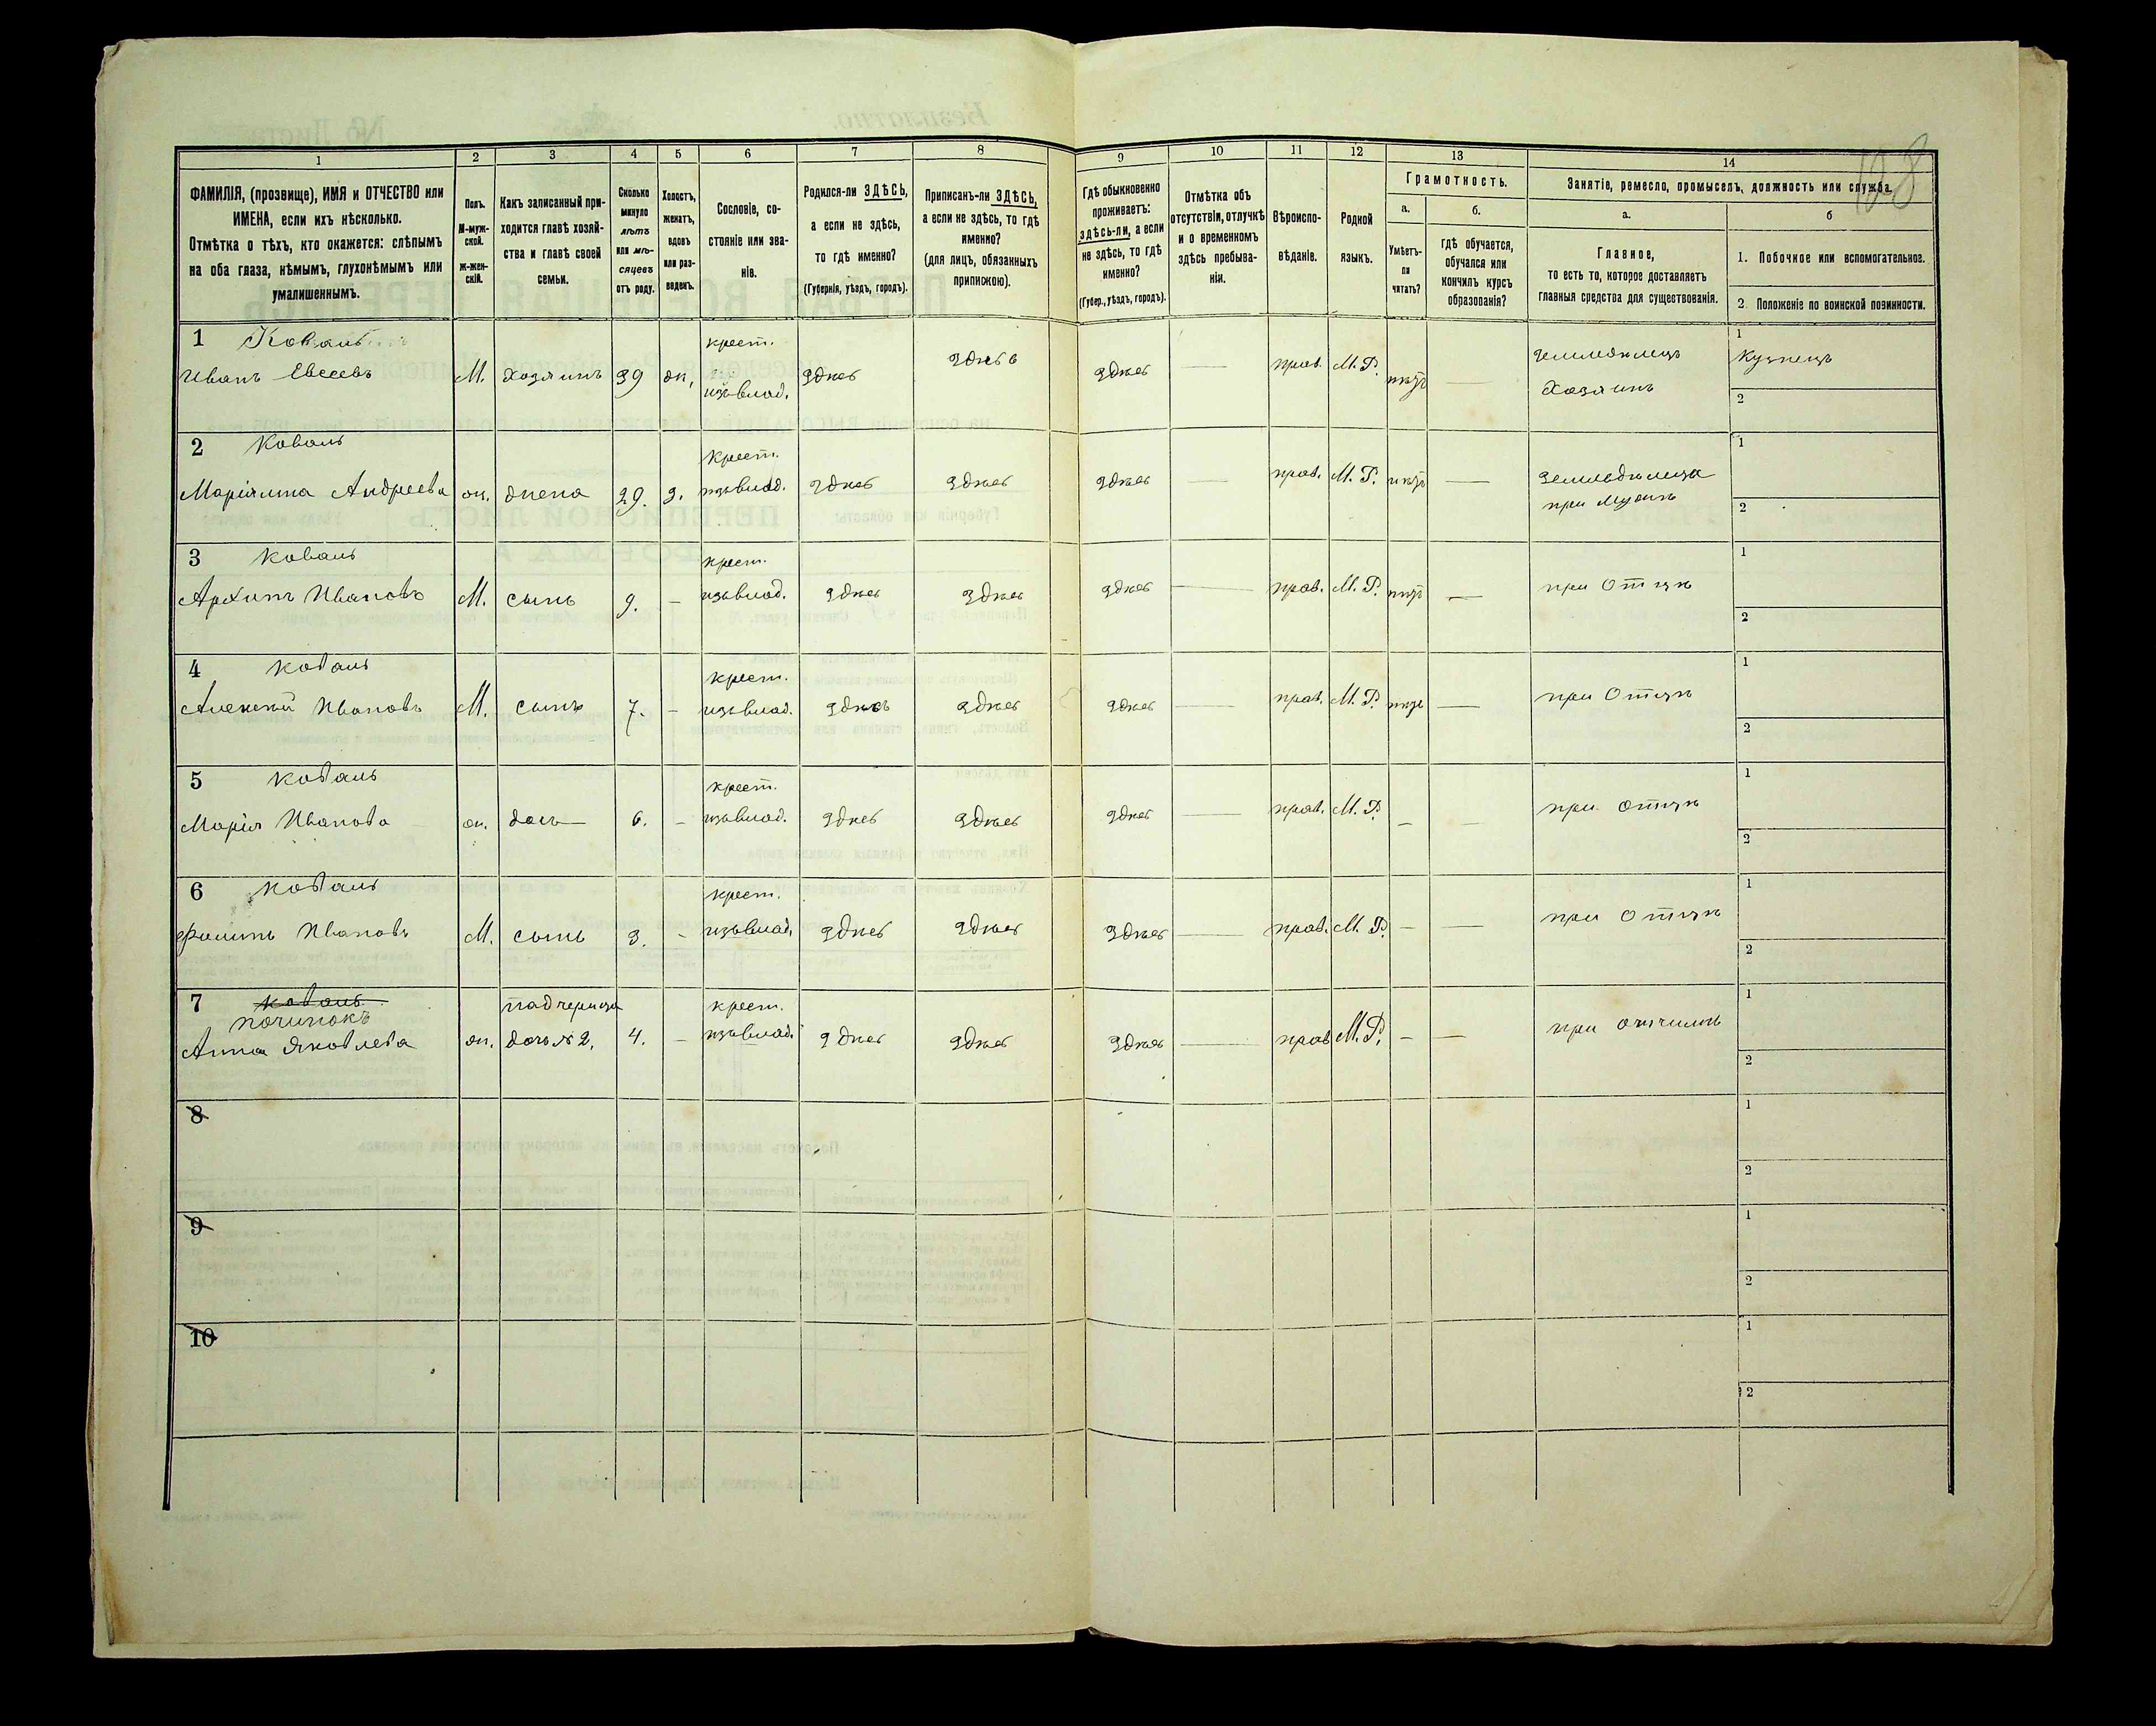 108
1 2 3 4 5 6 7 8 9 10 11 12 13 14
ФАМИЛІЯ, (прозвище), ИМЯ и ОТЧЕСТВО или
ИМЕНА, если ихъ нѣсколько.
Отмѣтка о тѣхъ, кто окажется: слѣпымъ
на оба глаза, нѣмымъ, глухонѣмымъ или
умалишеннымъ.
Полъ.
М-муж-
ской.
ж-жен-
скій.
Какъ записанный при-
ходится главѣ хозяй-
ства и главѣ своей
семьи.
Сколько
минуло
лѣтъ
или мѣ-
сяцевъ
отъ роду.
Холостъ,
женатъ,
вдовъ
или раз-
веденъ.
Сословіе, со-
стояніе или зва-
ніе.
Родился-ли ЗДѢСЬ,
а если не здѣсь,
то гдѣ именно?
(Губернія, уѣздъ, городъ).
Приписанъ-ли ЗДѢСЬ,
а если не здѣсь, то гдѣ
именно?
(для лицъ, обязанныхъ
припискою).
Гдѣ обыкновенно
проживаетъ:
здѣсь-ли, а если
не здѣсь, то гдѣ
именно?
(Губер., уѣздъ, городъ).
Отмѣтка объ
отсутствіи, отлучкѣ
и о временномъ
здѣсь пребыва-
ніи.
Вѣроиспо-
вѣданіе.
Родной
языкъ.
Грамотность.
а.
Умѣетъ-
ли
читать?
б.
гдѣ обучается,
обучался или
кончилъ курсъ
образованія?
Занятіе, ремесло, промыселъ, должность или служба.
а.
Главное,
то есть то, которое доставляетъ
главныя средства для существованія.
б
1. Побочное или вспомогательное.
2. Положеніе по воинской повинности.
1 Коваль
Иванъ Евсеевъ М. хозяинъ 39 ж. крест. изъ влад. здѣсь здѣсь здѣсь — прав. М. Р. нѣтъ — земледѣлецъ Хозяинъ 1 Кузнецъ
2
2 Коваль
Маріямна Андреева ж. жена 29. з. крест. изъ влад. здѣсь здѣсь здѣсь — прав. М. Р. нѣтъ — земледѣлица при мужѣ 1
2
3 Коваль
Архипъ Ивановъ М. сынъ 9. — крест. изъ влад. здѣсь здѣсь здѣсь — прав. М. Р. нѣтъ — при Отцѣ 1
2
4 Коваль
Алексѣй Ивановъ М. сынъ 7. — крест. изъ влад. здѣсь здѣсь здѣсь — прав. М. Р. нѣтъ — при Отцѣ 1
2
5 Коваль
Марія Иванова ж. дочь 6. — крест. изъ влад. здѣсь здѣсь здѣсь — прав. М. Р. — — при отцѣ 1
2
6 Коваль
Филипъ Ивановъ М. сынъ 3. — крест. изъ влад. здѣсь здѣсь здѣсь — прав. М. Р. — — при Отцѣ 1
2
7 Коваль
Починокъ
Анна Яковлева ж. падчерица дочь № 2, 4. — крест. изъ влад. здѣсь здѣсь здѣсь — прав М. Р. — — при отчимѣ 1
2
8 1
2
9 1
2
10 1
2